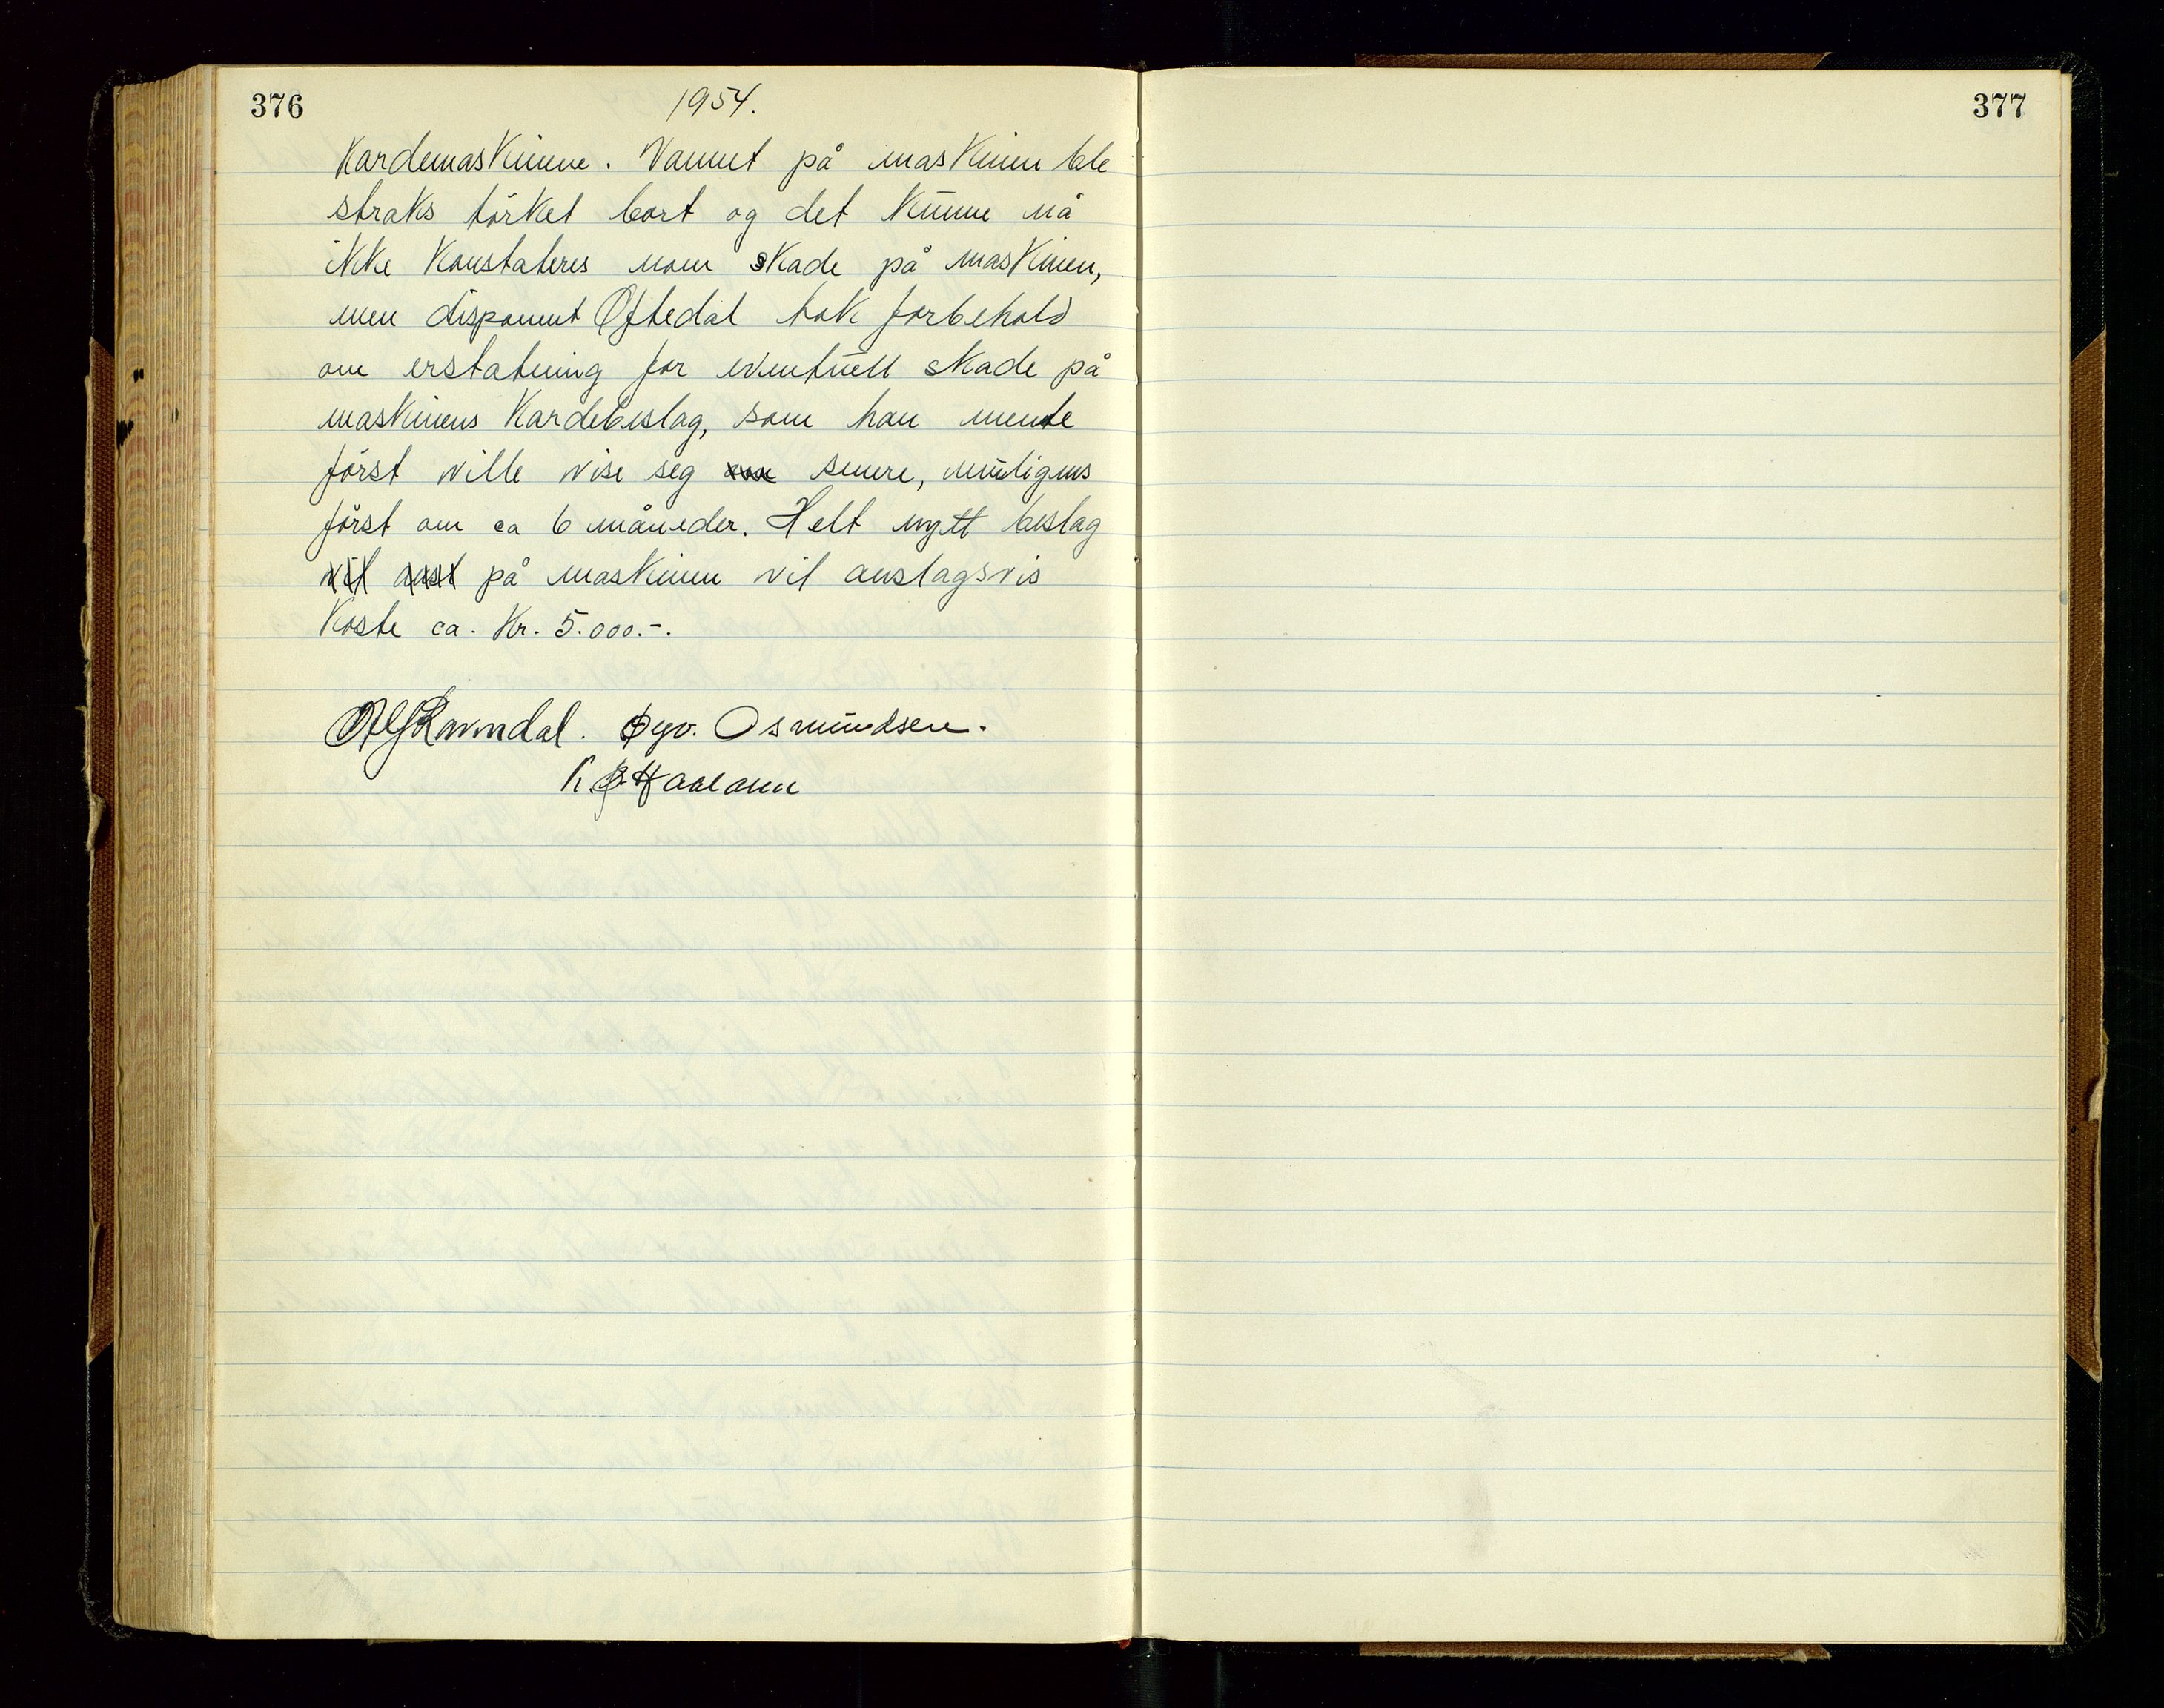 376
1954.
Kardemaskinene. Vannet på maskinen ble
straks törket bort og det kunne nå
ikke konstateres noen skade på maskinen,
men disponent Oftedal tok forbehold
om erstatning for eventuell skade på
maskinens kardebeslag, som han mente
först ville vise seg senere, muligens
först om ca 6 måneder. Helt nytt beslag
på maskinen vil anslagsvis
koste ca. Kr. 5.000.-.
Ravndal. Osmundsen.
377